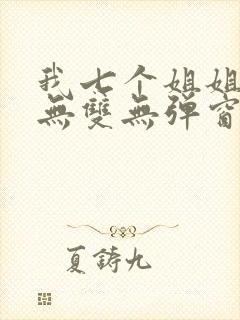 我七个姐姐
無雙無彈窗
夏鑄九